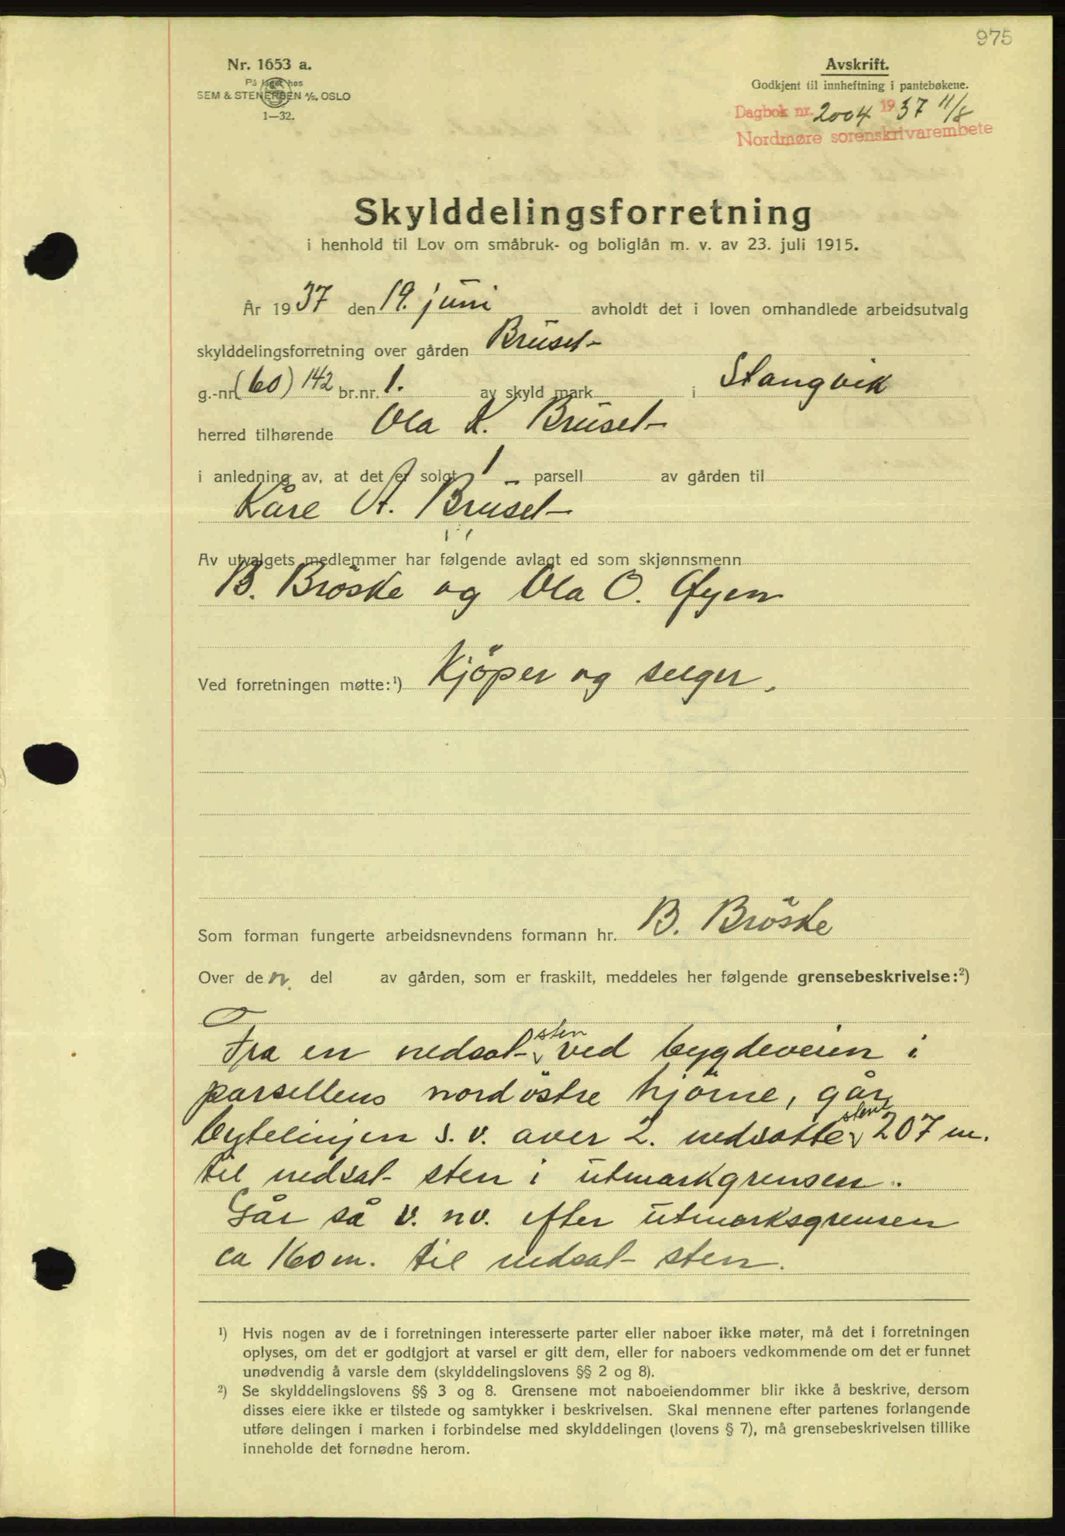 975
Nr. 1653 a.
På lager hos
SEM & STENERSEN A/S, OSLO
1—32.
Avskrift.
Godkjent til innheftning i pantebøkene.
Dagbok nr. 2004 1937 11/8
Nordmøre sorenskrivarembete
Skylddelingsforretning
i henhold til Lov om småbruk- og boliglån m. v. av 23. juli 1915.
År 1937 den 19. juni avholdt det i loven omhandlede arbeidsutvalg
skylddelingsforretning over gården Bruset
g.-nr. (60) 142 br.nr. 1. av skyld mark i Stangvik
herred tilhørende Ola K. Bruset
i anledning av, at det er solgt 1 parsell av gården til
Kåre A. Bruset
Av utvalgets medlemmer har følgende avlagt ed som skjønnsmenn
B. Bröske og Ola O. Øyen
Ved forretningen møtte:¹) Kjöper og selger.
Som forman fungerte arbeidsnevndens formann hr. B. Bröske
Over den del av gården, som er fraskilt, meddeles her følgende grensebeskrivelse:²)
Fra en nedsat sten ved bygdeveien i
parsellens nordöstre hjörne, går
bytelinjen s. v. over 2. nedsatte stene 207 m.
til nedsat sten i utmarkgrensen.
Går så v. nv. efter utmarksgrensen
ca 160 m. til nedsat sten.
¹) Hvis nogen av de i forretningen interesserte parter eller naboer ikke møter, må det i forretningen
oplyses, om det er godtgjort at varsel er gitt dem, eller for naboers vedkommende om det er funnet
unødvendig å varsle dem (skylddelingslovens §§ 2 og 8).
²) Se skylddelingslovens §§ 3 og 8. Grensene mot naboeiendommer blir ikke å beskrive, dersom
disses eiere ikke er tilstede og samtykker i beskrivelsen. Skal mennene efter partenes forlangende
utføre delingen i marken i forbindelse med skylddelingen (lovens § 7), må grensebeskrivelsen tillike
inneholde det fornødne herom.